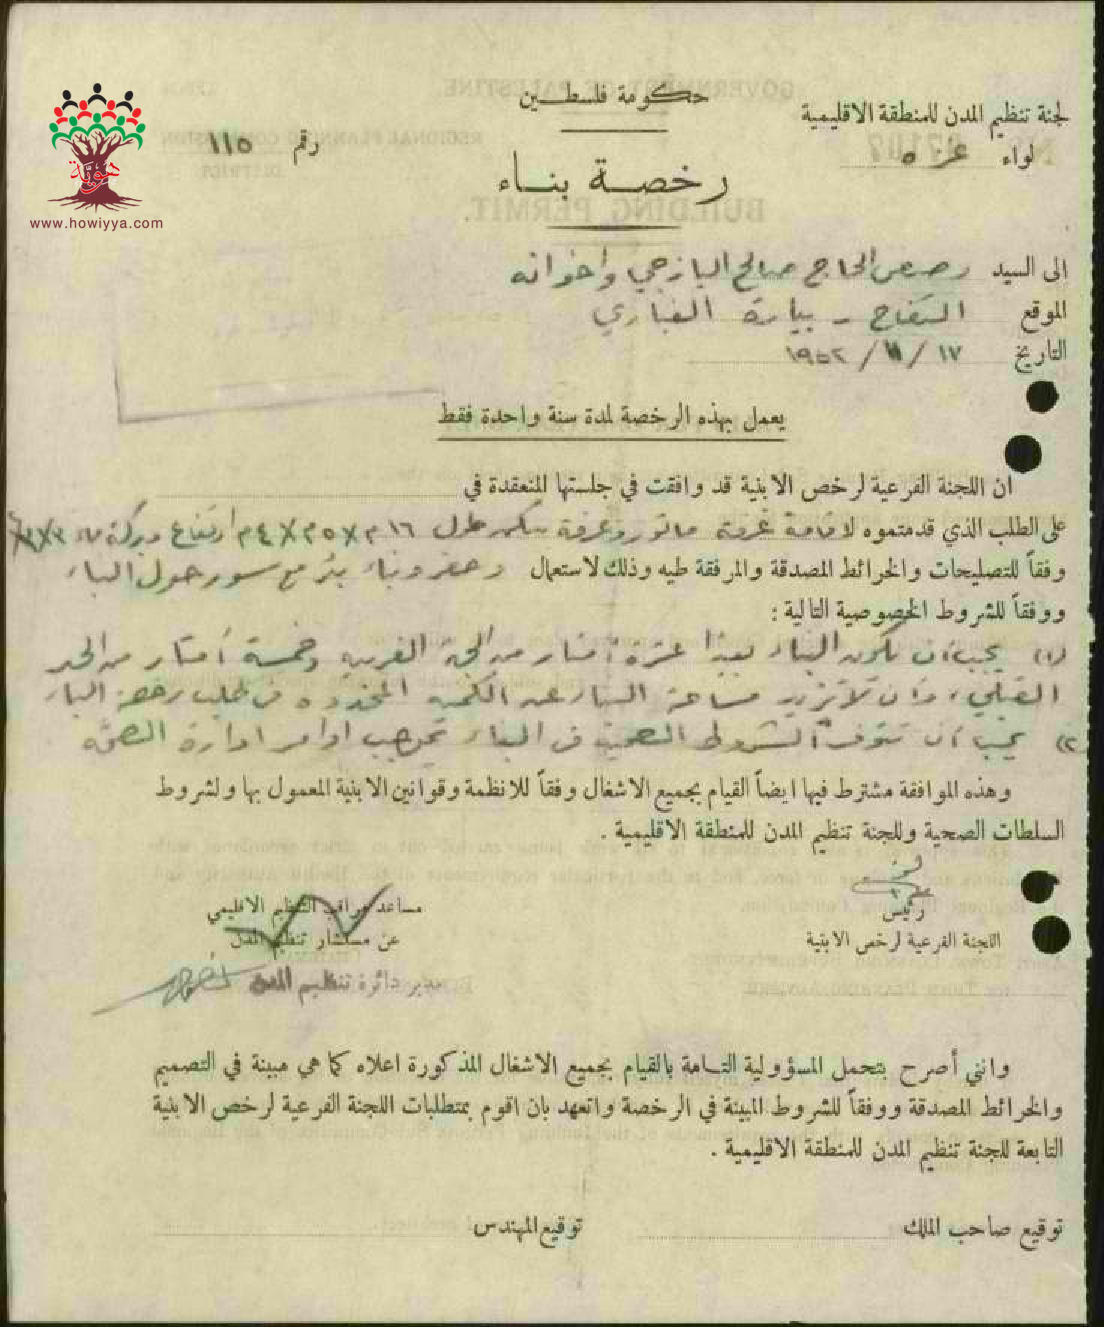 حكومة فلسطين
لجنة تنظيم المدن للمنطقة الاقليمية
لواء غزه
رقم ١١٥
هوية
www.howiyya.com
رخصة بناء
الى السيد الحاج صالح اليازجي واخوانه
الموقع التفاح - بيارة الغباري
التاريخ ١٧ / ١١ / ١٩٥٢
يعمل بهذه الرخصة لمدة سنة واحدة فقط
ان اللجنة الفرعية لرخص الابنية قد وافقت في جلستها المنعقدة في
على الطلب الذي قدمتموه لاقامة غرفة ماتور وغرفة طول ١٦ م × ٥ م × ٤ م ارتفاع وبركة
وفقاً للتصليحات والخرائط المصدقة والمرفقة طيه وذلك لاستعمال وحفر وبناء بئر مع سور حول البناء
ووفقاً للشروط الخصوصية التالية :
(١) يجب ان يكون البناء بعيدا عشرة امتار من الجهة الغربيه وخمسة أمتار من الحد
القبلي، وان لا تزيد مساحة البناء عن الكميه المحدوده في طلب رخصة البناء
(٢) يجب ان تتوفر الشروط الصحية في البناء بموجب اوامر ادارة الصحة
وهذه الموافقة مشترط فيها ايضاً القيام بجميع الاشغال وفقاً للانظمة وقوانين الابنية المعمول بها ولشروط
السلطات الصحية وللجنة تنظيم المدن للمنطقة الاقليمية .
رئيس
اللجنة الفرعية لرخص الابنية
مساعد مراقب التنظيم الاقليمي
عن مستشار تنظيم المدن
مدير دائرة تنظيم المدن
وانني أصرح بتحمل المسؤولية التامة بالقيام بجميع الاشغال المذكورة اعلاه كما هي مبينة في التصميم
والخرائط المصدقة ووفقاً للشروط المبينة في الرخصة واتعهد بان اقوم بمتطلبات اللجنة الفرعية لرخص الابنية
التابعة للجنة تنظيم المدن للمنطقة الاقليمية .
توقيع صاحب الملك
توقيع المهندس